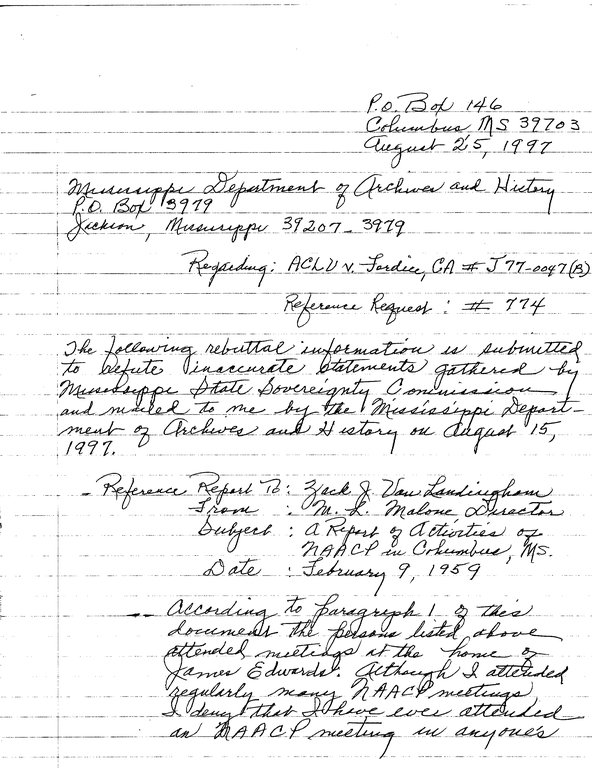 P.O. Box 146
Columbus MS 39703
August 25, 1997
Mississippi Department of Archives and History
P.O. Box 3979
Jackson, Mississippi 39207-3979
Regarding: ACLU v. Fordice, CA # J77-0047(B)
Reference Request: # 774
The following rebuttal information is submitted
to refute inaccurate statements gathered by
Mississippi State Sovereignty Commission
and mailed to me by the Mississippi Depart-
ment of Archives and History on August 15,
1997.
- Reference Report To: Zack J. Van Landingham
From : M. L. Malone Director
Subject : A Report of Activities of
NAACP in Columbus, MS.
Date : February 9, 1959
-- According to paragraph 1 of this
document the persons listed above
attended meetings at the home of
James Edwards. Although I attended
regularly many NAACP meetings
I deny that I have ever attended
an NAACP meeting in anyone's